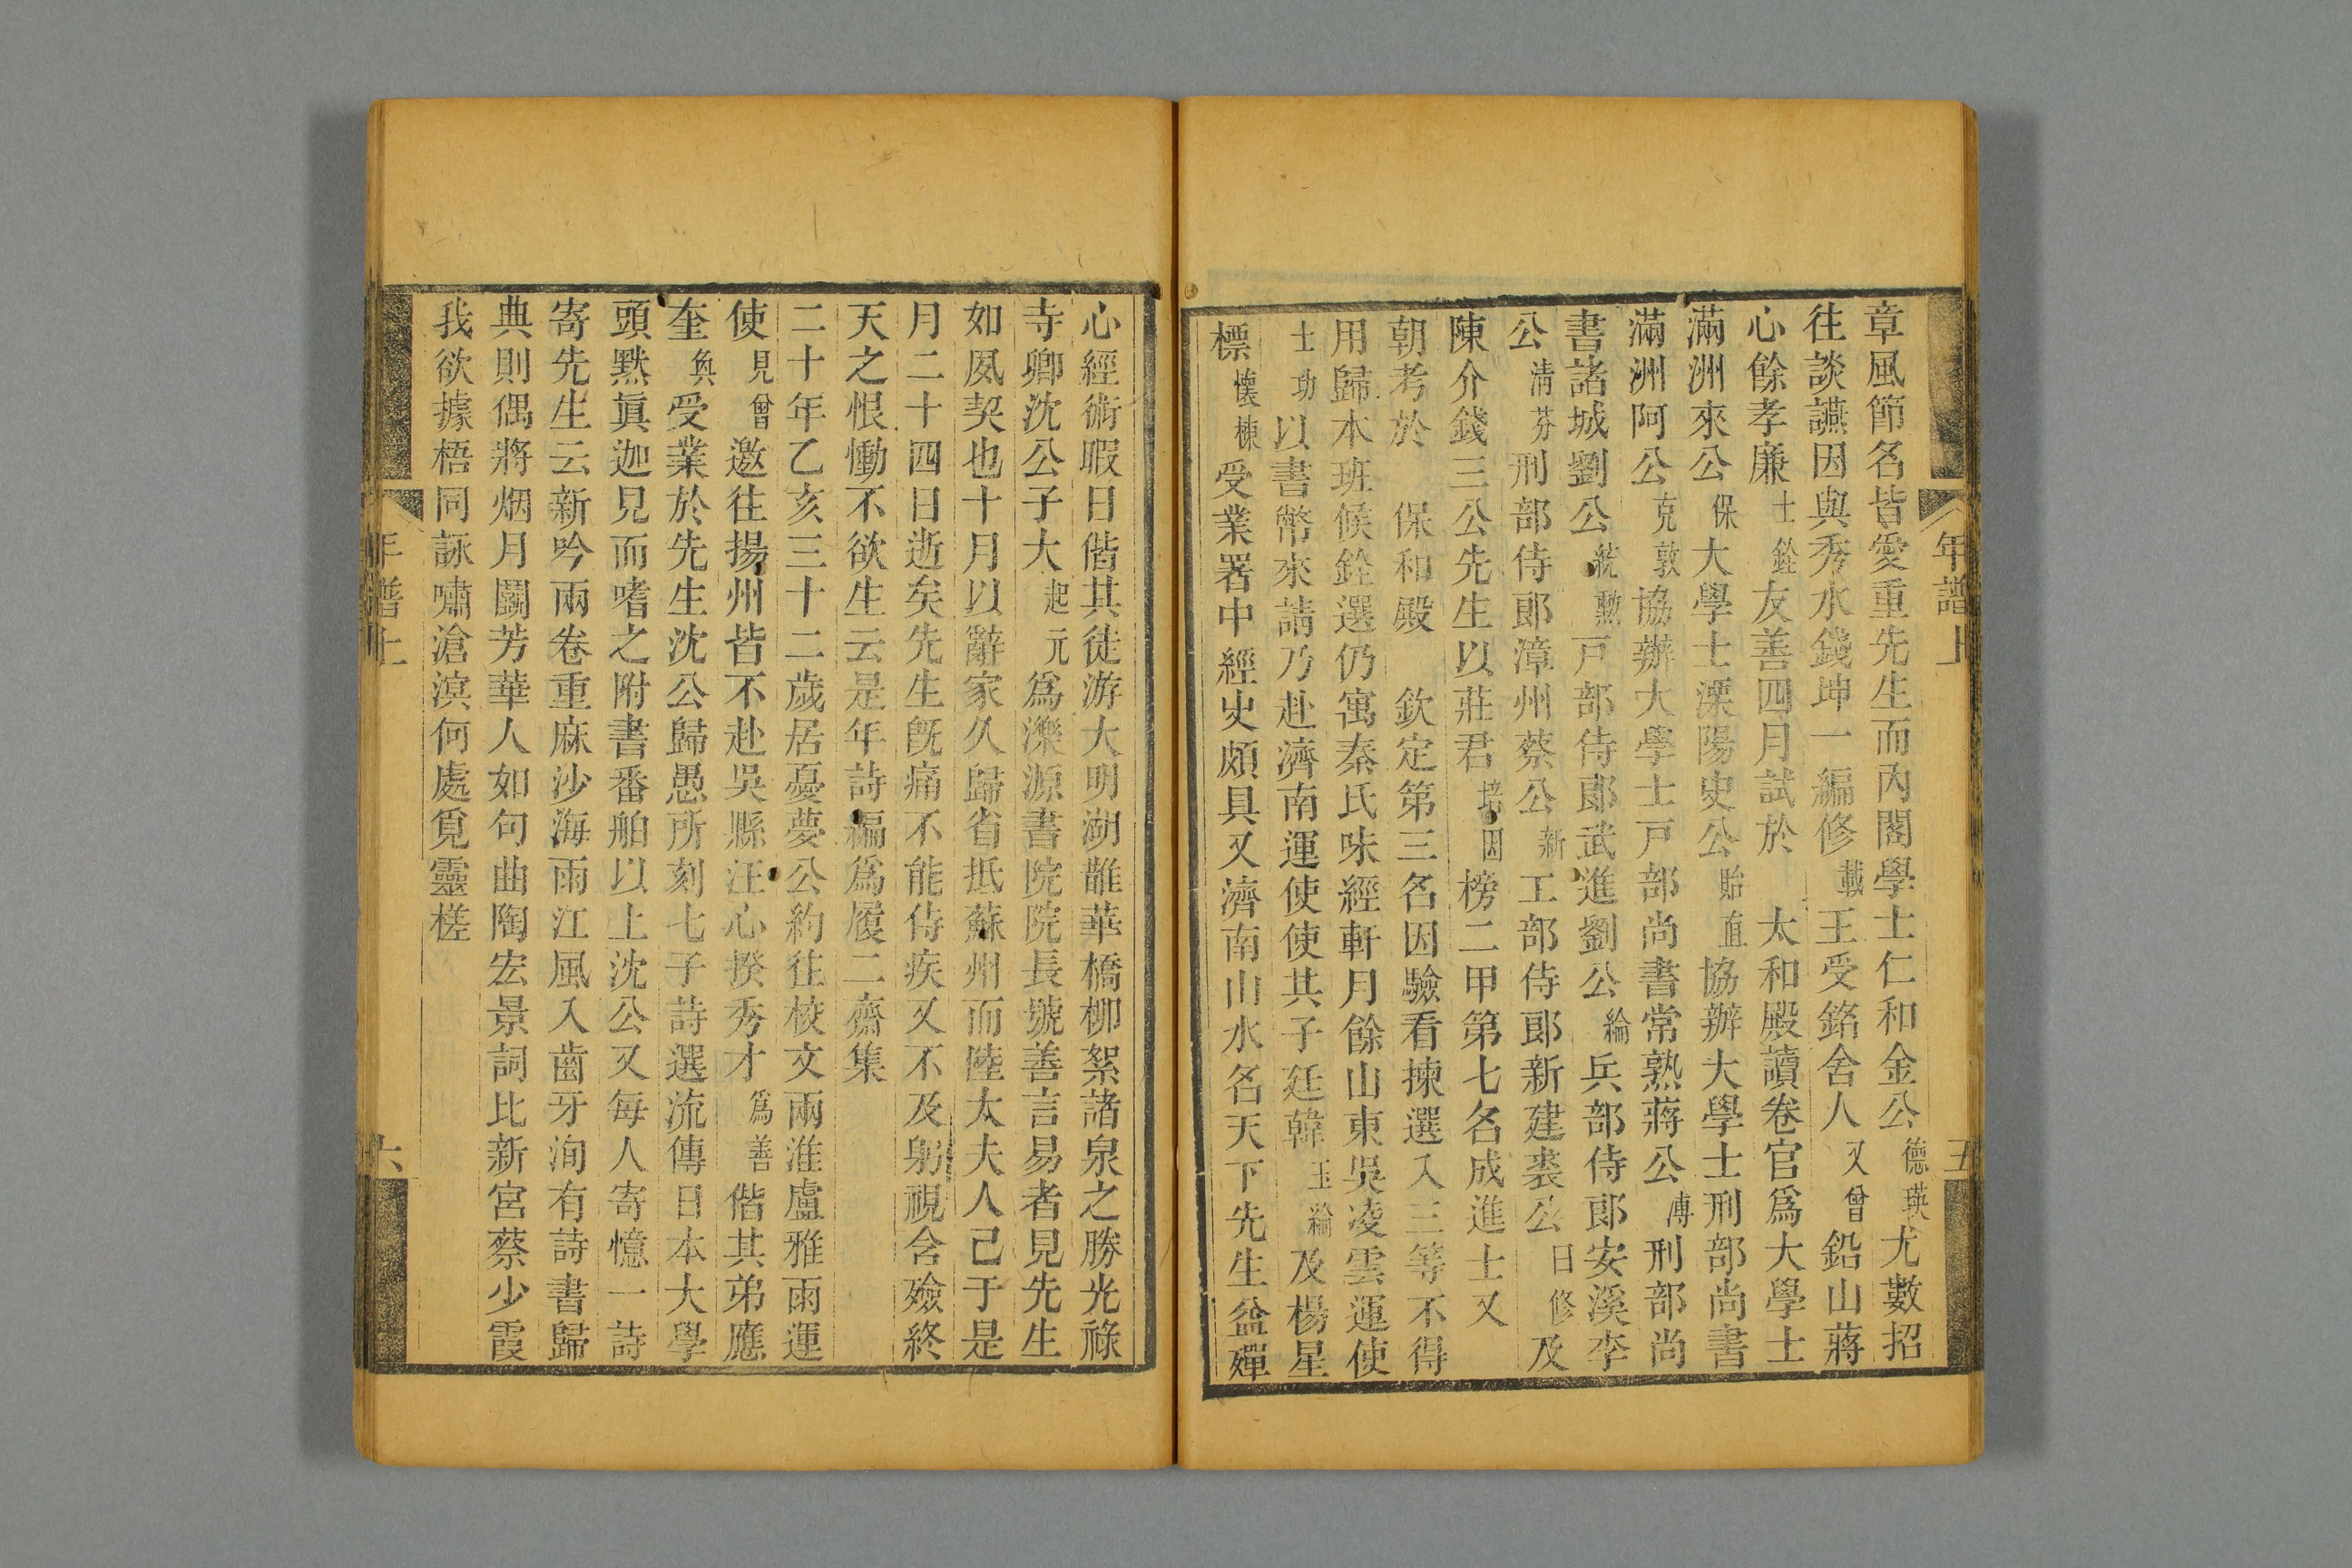 年譜上
五
章風節名皆愛重先生而內閣學士仁和金公德瑛尤數招
往談讌因與秀水錢坤一編修載王受銘舍人又曾鉛山蔣
心餘孝廉士銓友善四月試於 太和殿讀卷官爲大學士
滿洲來公保大學士溧陽史公貽直協辦大學士刑部尚書
滿洲阿公克敦協辦大學士戸部尚書常熟蔣公溥刑部尚
書諸城劉公統勲戸部侍郞武進劉公綸兵部侍郞安溪李
公清芬刑部侍郞漳州蔡公新工部侍郞新建裘公日修及
陳介錢三公先生以莊君培因榜二甲第七名成進士又
朝考於 保和殿 欽定第三名因驗看揀選入三等不得
用歸本班候銓選仍寓秦氏味經軒月餘山東吳凌雲運使
士功以書幣來請乃赴濟南運使使其子廷韓玉綸及楊星
標懐棟受業署中經史頗具又濟南山水名天下先生益殫
心經術暇日偕其徒游大明湖鵲華橋柳絮諸泉之勝光祿
寺卿沈公子大起元爲濼源書院院長號善言易者見先生
如夙契也十月以辭家久歸省抵蘇州而陸太夫人已于是
月二十四日逝矣先生旣痛不能侍疾又不及躬視含殮終
天之恨慟不欲生云是年詩編爲履二齋集
二十年乙亥三十二歲居憂夢公約往校文兩淮盧雅雨運
使見曾邀往揚州皆不赴吳縣汪心揆秀才爲善偕其弟應
奎奐受業於先生沈公歸愚所刻七子詩選流傳日本大學
頭默眞迦見而嗜之附書番舶以上沈公又每人寄憶一詩
寄先生云新吟兩卷重麻沙海雨江風入齒牙洵有詩書歸
典則偶將烟月鬬芳華人如句曲陶宏景詞比新宮蔡少霞
我欲據梧同詠嘯滄溟何處覓靈槎
年譜上
六